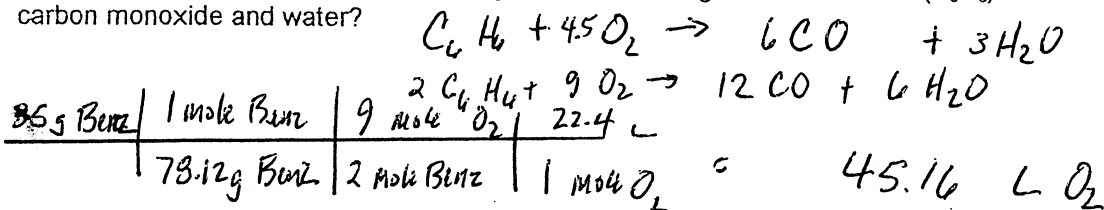 carbon monoxide and water?
C6 H6 + 4.5 O2 → 6 CO + 3 H2O
2 C6 H6 + 9 O2 → 12 CO + 6 H2O
35 g Benz | 1 mole Benz | 9 mole O2 | 22.4 L
78.12g Benz | 2 mole Benz | 1 mole O2 = 45.16 L O2